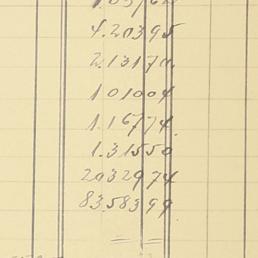 4.20395
2.13170
1 01004
1.16774
1.31550
2032974
83.58399